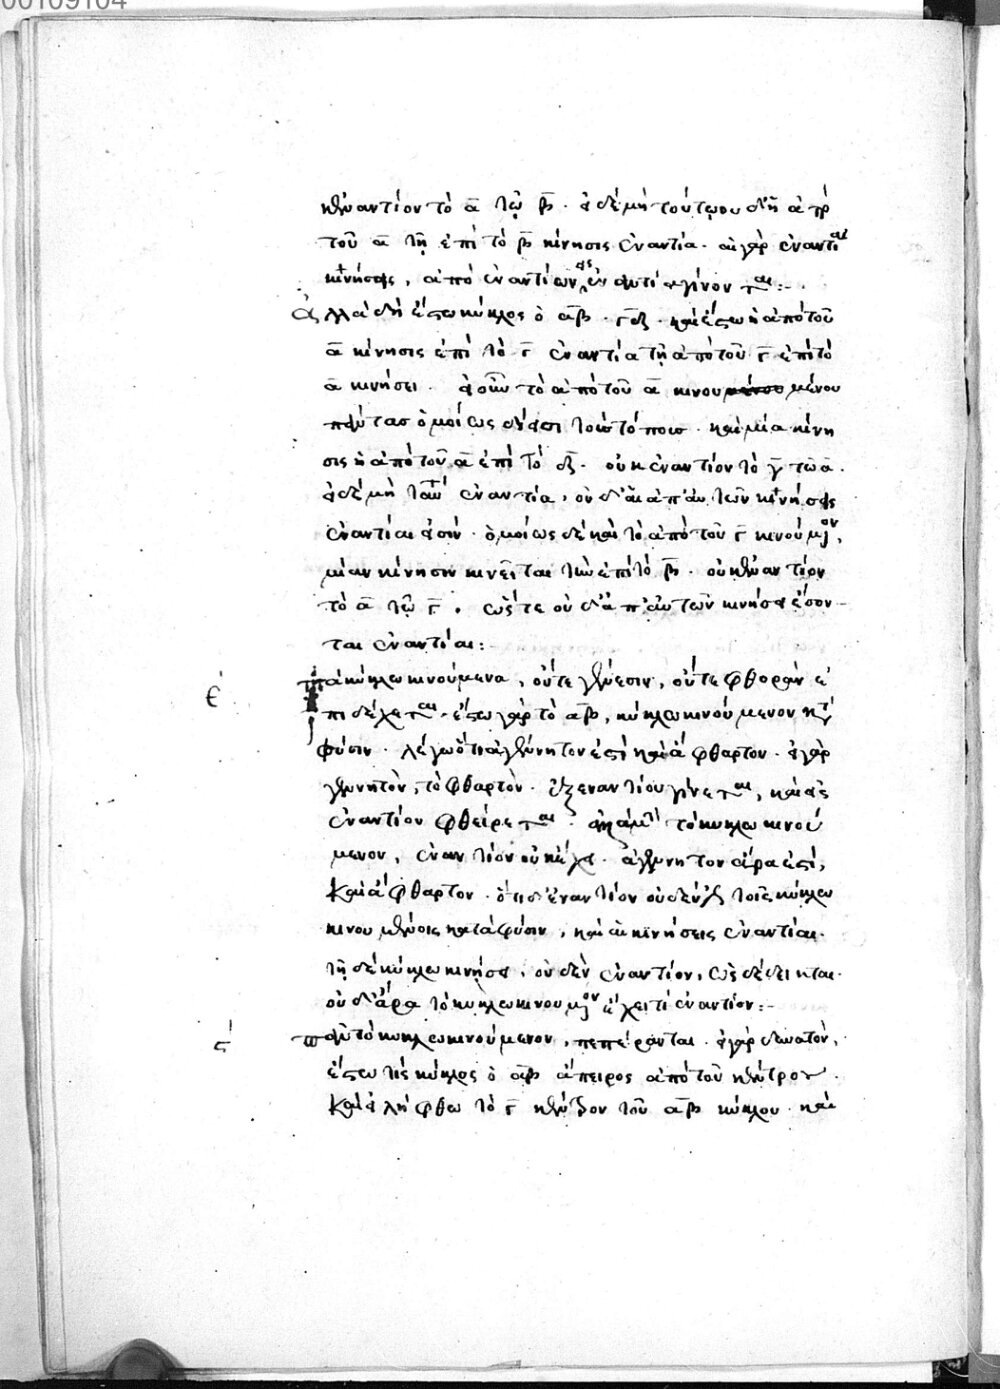 00109104
κ᾽ ἐναντίον τὸ α τῷ β. εἰ δὲ μὴ τούτου οὐδ᾽ ἡ ἀπὸ
τοῦ α τῇ ἐπὶ τὸ β κίνησις ἐναντία. αἱ γὰρ ἐναντίαι
κινήσεις, ἀπὸ ἐναντίων εἰς ἐναντία γίνονται:
ἀλλὰ δὴ ἔστω κύκλος ὁ αβ. γδ. καὶ ἔστω ἡ ἀπὸ τοῦ
α κίνησις ἐπὶ τὸ γ ἐναντία τῇ ἀπὸ τοῦ γ ἐπὶ τὸ
α κινήσει. εἰ οὖν τὸ ἀπὸ τοῦ α κινου μένου
πάντας ὁμοίως ἐνέσει τοῖς τόποις. καὶ μία κίνη
σις ἡ ἀπὸ τοῦ α ἐπὶ τὸ δ. οὐκ ἐναντίον τὸ γ τῷ α.
εἰ δὲ μὴ ταῦτα ἐναντία, οὐδ᾽ αἱ ἀπ᾽ αὐτῶν κινήσεις
ἐναντίαι εἰσίν. ὁμοίως δὲ καὶ τὸ ἀπὸ τοῦ γ κινούμενον,
μίαν κίνησιν κινεῖται τὴν ἐπὶ τὸ β. οὐκ ἐναντίον
τὸ α τῷ γ. ὥστε οὐδ᾽ ἀπ᾽ αὐτῶν κινήσεις ἔσον
ται ἐναντίαι:
ε τὰ κύκλω κινούμενα, οὔτε γένεσιν, οὔτε φθορὰν ἐ
πιδέχεται. ἔστω γὰρ τὸ αβ, κύκλω κινούμενον κατὰ
φύσιν. λέγω ὅτι ἀγένητον ἐστὶ καὶ ἄφθαρτον. εἰ γὰρ
γενητὸν, τὸ φθαρτὸν. ἐξ ἐναντίου γίνεται, καὶ εἰς
ἐναντίον φθείρεται. ἀλλὰ μὴν τὸ κύκλω κινού
μενον, ἐναντίον οὐκ ἔχει. ἀγένητον ἄρα ἐστὶ,
καὶ ἄφθαρτον. ὅτι δ᾽ ἐναντίον οὐδέν ἐστι τοῖς κύκλω
κινουμένοις κατὰ φύσιν, καὶ αἱ κινήσεις ἐναντίαι.
τῇ δὲ κύκλω κινήσει, οὐδὲν ἐναντίον, ὡς δέδεικται.
οὐδ᾽ ἄρα τὸ κύκλω κινούμενον ἔχει τί ἐναντίον:
ϛ πᾶν τὸ κύκλω κινούμενον, πεπέρανται. εἰ γὰρ δυνατὸν,
ἔστω τίς κύκλος ὁ αβ ἄπειρος ἀπὸ τοῦ κέντρου.
καὶ εἰλήφθω τὸ γ κέντρον τοῦ αβ κύκλου. καὶ